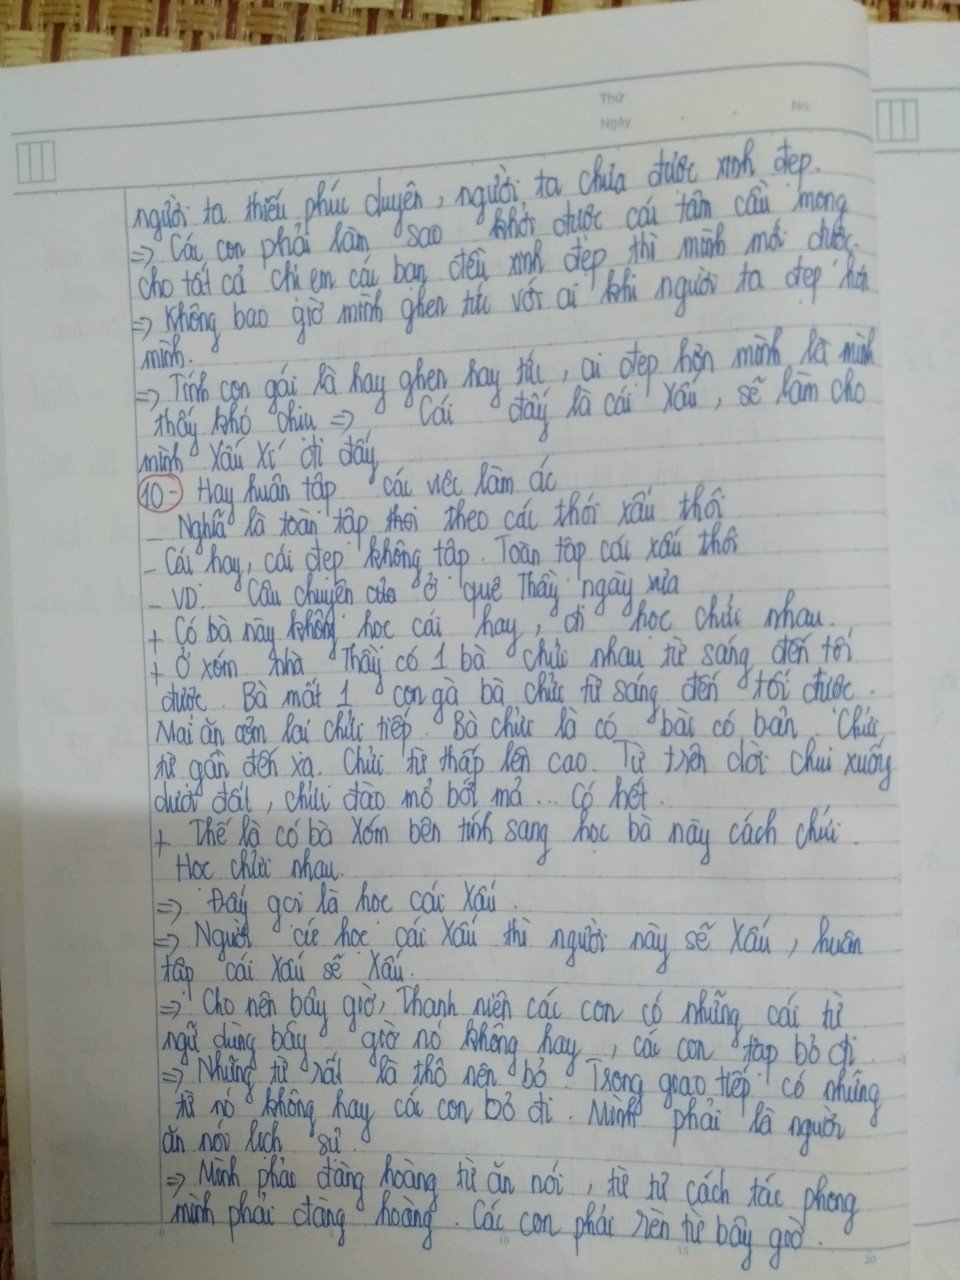 Thứ
No.
Ngày
người ta thiếu phúc duyên, người ta chưa được xinh đẹp.
=> Các con phải làm sao khởi được cái tâm cầu mong
cho tất cả chị em các bạn đều xinh đẹp thì mình mới được.
=> Không bao giờ mình ghen tức với ai khi người ta đẹp hơn
mình.
=> Tính con gái là hay ghen hay tức, ai đẹp hơn mình là mình
thấy khó chịu => Cái đấy là cái xấu, sẽ làm cho
mình xấu xí đi đấy
10- Hay huân tập các việc làm ác
- Nghĩa là toàn tập theo các thói xấu thôi
- Cái hay, cái đẹp không tập. Toàn tập cái xấu thôi
- VD: Câu chuyện của ở quê Thầy ngày xưa
+ Có bà này không học cái hay, đi học chửi nhau.
+ Ở xóm nhà Thầy có 1 bà chửi nhau từ sáng đến tối
được. Bà mất 1 con gà bà chửi từ sáng đến tối được.
Mai ăn cơm lại chửi tiếp. Bà chửi là có bài có bản. Chửi
từ gần đến xa. Chửi từ thấp lên cao. Từ trên dời chui xuống
dưới đất, chửi đào mồ bốt mả ... Có hết.
+ Thế là có bà xóm bên tính sang học bà này cách chửi.
Học chửi nhau.
=> Đấy gọi là học cái xấu.
=> Người cứ học cái xấu thì người này sẽ xấu, huân
tập cái xấu sẽ xấu.
=> Cho nên bây giờ, Thanh niên các con có những cái từ
ngữ dùng bây giờ nó không hay, các con tập bỏ đi.
=> Những từ rất là thô nên bỏ. Trong giao tiếp có những
từ nó không hay các con bỏ đi. Mình phải là người
ăn nói lịch sự.
=> Mình phải đàng hoàng từ ăn nói, từ từ cách tác phong
mình phải đàng hoàng. Các con phải rèn từ bây giờ.
0 5 10 15 20